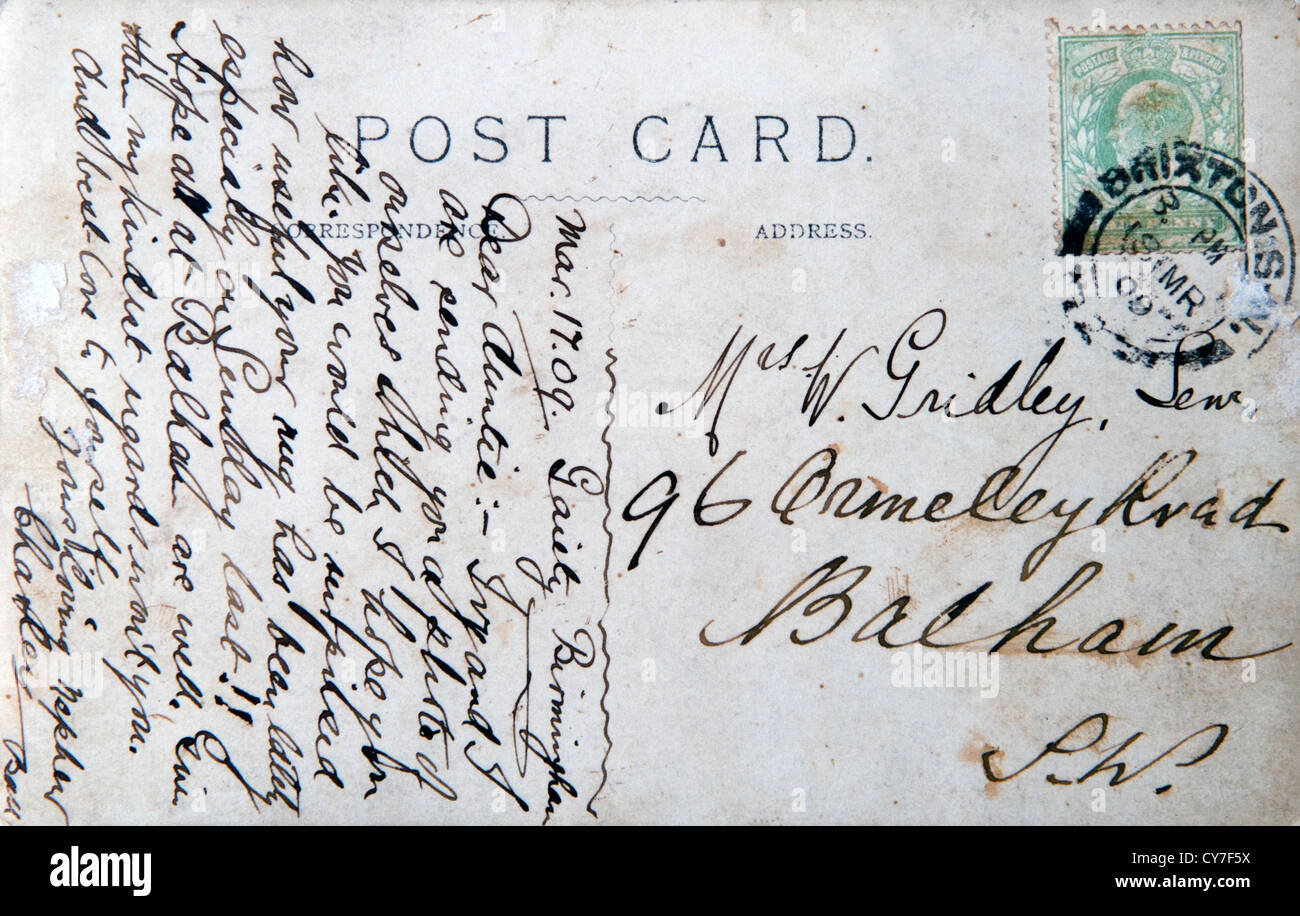 POST CARD.
CORRESPONDENCE
ADDRESS.
POSTAGE & REVENUE
BRIXTON S.W.
3. PM
19 MR
09
Mrs W. Gridley, Senr.
96 Ormeley Road
Balham
S.W.
Mar. 17.09. Gaiety Birmingham
Dear Auntie:- Ivy and I
are sending you a photo of
ourselves which I hope you
like. You would be surprised
how useful your rug has been lately
especially on Sunday last!!
Hope all at Balham are well. Give
them my kindest regards
and best love to yourself.
Yours loving nephew
Charles
alamy
Image ID: CY7F5X
www.alamy.com